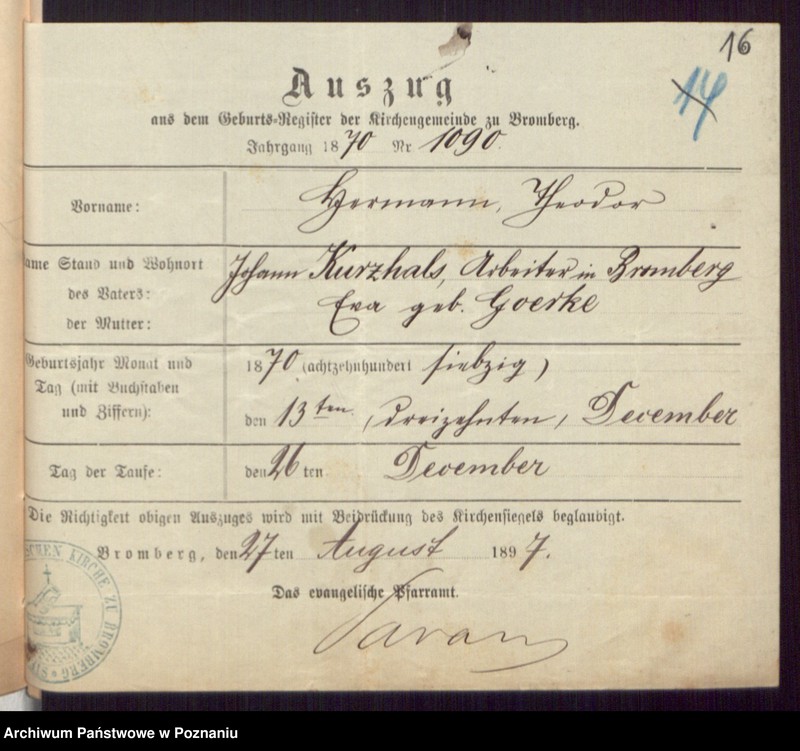 16
14
Auszug
aus dem Geburts-Register der Kirchengemeinde zu Bromberg.
Jahrgang 1870 Nr. 1090.
Vorname: Hermann, Theodor
ame Stand und Wohnort
des Vaters: Johann Kurzhals, Arbeiter in Bromberg
der Mutter: Eva geb. Goerke
Geburtsjahr Monat und
Tag (mit Buchstaben
und Ziffern):
1870 (achtzehnhundert siebzig)
den 13ten (dreizehnten) December
Tag der Taufe: den 26ten December
Die Richtigkeit obigen Auszuges wird mit Beidrückung des Kirchensiegels beglaubigt.
Bromberg, den 27ten August 1897.
Das evangelische Pfarramt.
SCHEN KIRCHE ZU BROMBERG
Archiwum Państwowe w Poznaniu